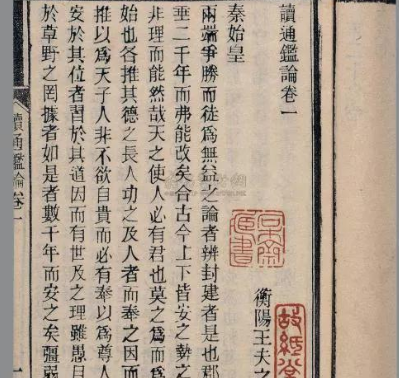 讀通鑑論卷一
衡陽王夫之
秦始皇
兩端爭勝而徒爲無益之論者辨封建者是也郡
垂二千年而弗能改矣合古今上下皆安之勢之
非理而能然哉天之使人必有君也莫之爲而爲
始也各推其德之長人功之及人者而奉之因而
推以爲天子人非不欲自貴而必有奉以爲尊人
安於其位者習於其道因而有世及之理雖愚且
於草野之罔據者如是者數千年而安之矣彊弱
讀通鑑論卷一
一